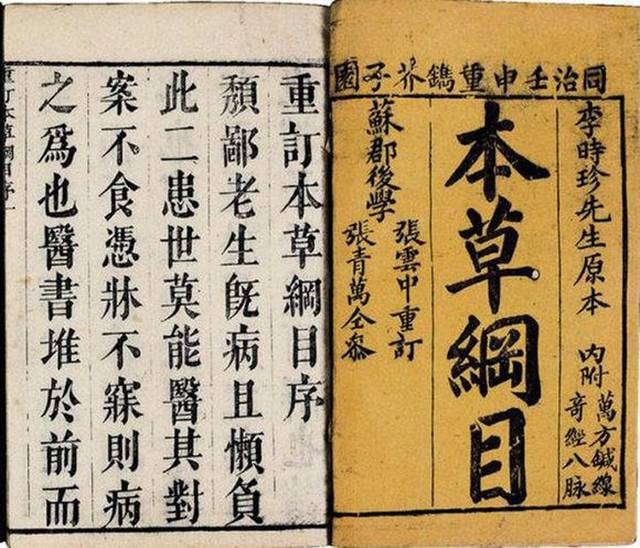 同治壬申重鐫芥子園
李時珍先生原本
內附
萬方鍼線
奇經八脉
本草綱目
蘇郡後學
張雲中重訂
張青萬仝叅
重訂本草綱目序
頽鄙老生旣病且懶負
此二患世莫能醫其對
案不食憑牀不寐則病
之爲也醫書堆於前而
重訂本草綱目序一